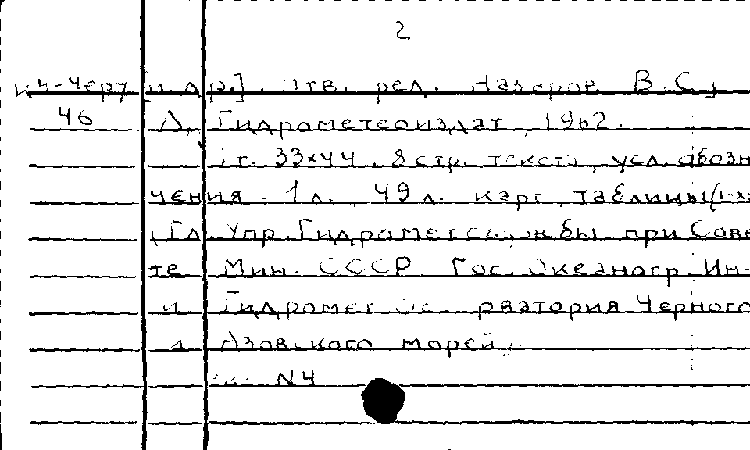 2
[и др.]. Отв. ред. Назаров В.С.,
46 Л. Гидрометеоиздат, 1962.
33×44, 8 стр. текста, усл. обозн
чения 1 л., 49 л. карт, таблицы
Гл. Упр. Гидрометсл жбы при Сове
те Мин. СССР. Гос. Океаногр. Ин-
и Гидромет. рватория Черного
и Азовского морей,
N4